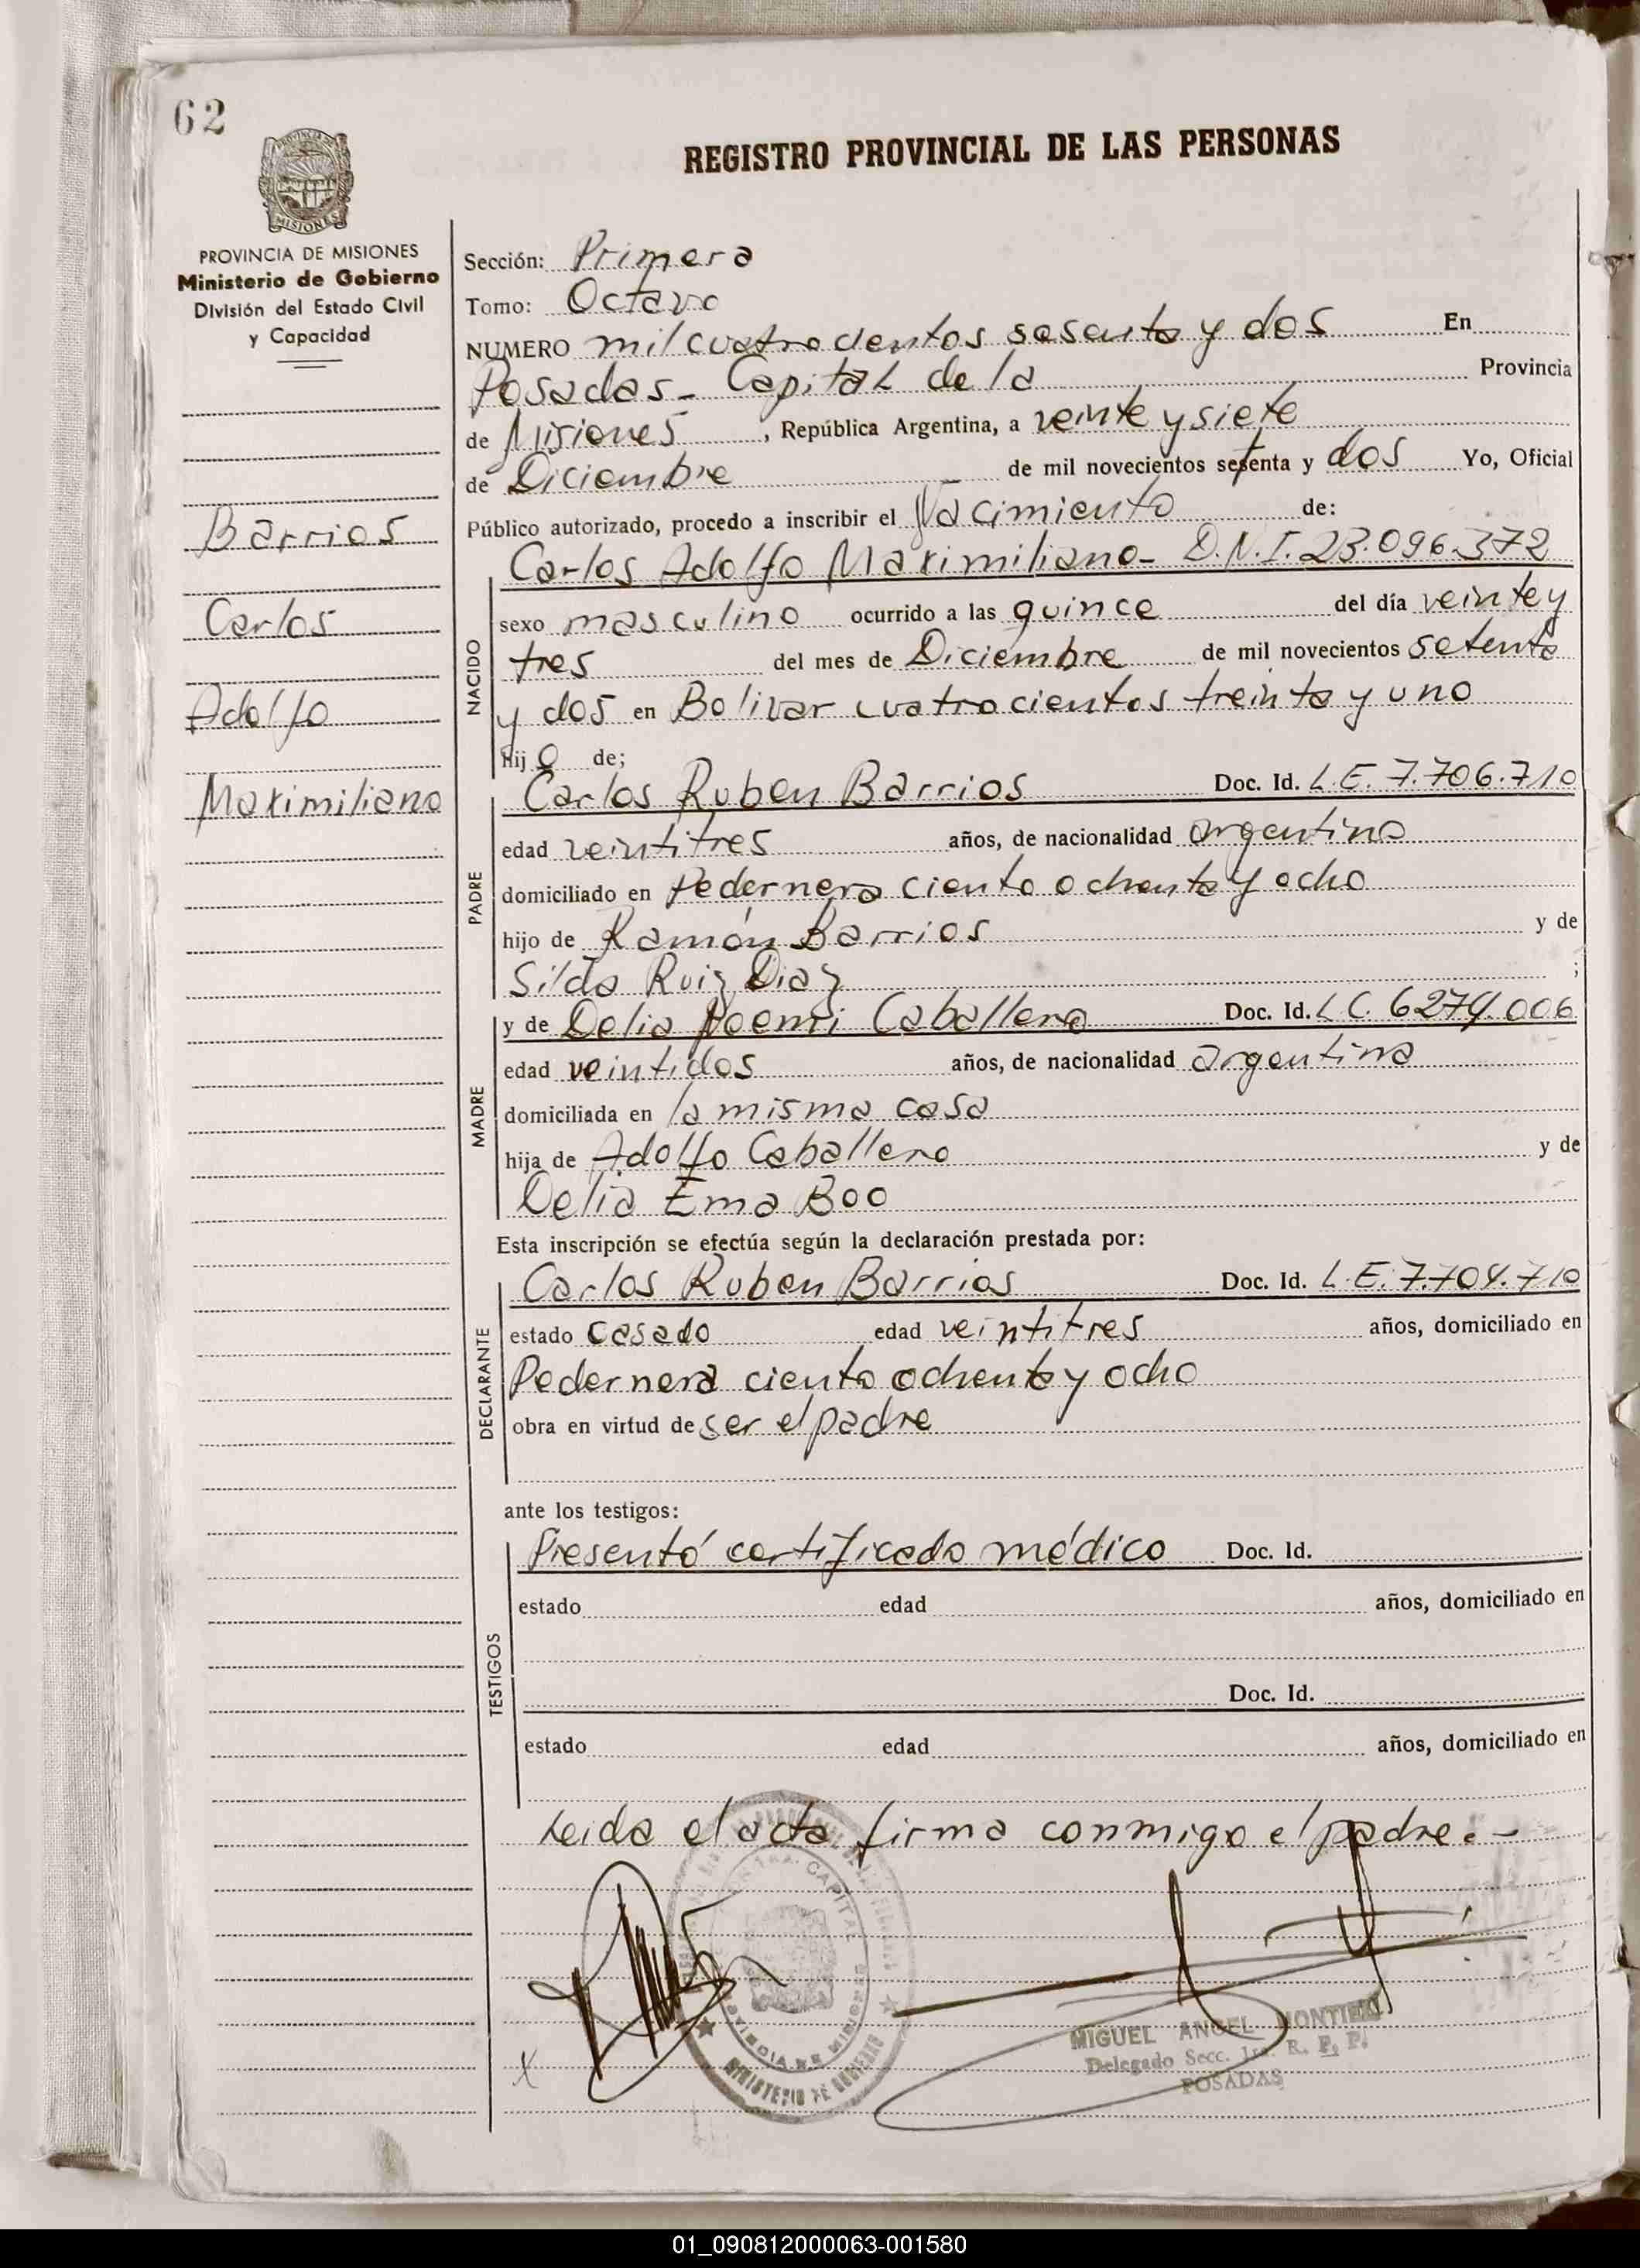 62
REGISTRO PROVINCIAL DE LAS PERSONAS
PROVINCIA DE MISIONES
Ministerio de Gobierno
División del Estado Civil
y Capacidad
Barrios
Carlos
Adolfo
Maximiliano
Sección: Primera
Tomo: Octavo
NUMERO mil cuatrocientos sesenta y dos En
Posadas - Capital de la Provincia
de Misiones, República Argentina, a veinte y siete
de Diciembre de mil novecientos setenta y dos Yo, Oficial
Público autorizado, procedo a inscribir el Nacimiento de:
Carlos Adolfo Maximiliano - D.N.I. 23.096.372
NACIDO
sexo masculino ocurrido a las quince del día veinte y
tres del mes de Diciembre de mil novecientos setenta
y dos en Bolivar cuatrocientos treinta y uno
hijo de;
Carlos Ruben Barrios Doc. Id. L.E. 7.706.710
PADRE
edad veintitres años, de nacionalidad argentina
domiciliado en Pedernera ciento ochenta y ocho
hijo de Ramón Barrios y de
Silda Ruiz Diaz ;
y de Delia Noemi Caballero Doc. Id. L C. 6279.006
MADRE
edad veintidos años, de nacionalidad argentina
domiciliada en la misma casa
hija de Adolfo Caballero y de
Delia Ema Boo
Esta inscripción se efectúa según la declaración prestada por:
Carlos Ruben Barrios Doc. Id. L.E. 7.704.710
DECLARANTE
estado casado edad veintitres años, domiciliado en
Pedernera ciento ochenta y ocho
obra en virtud de ser el padre
ante los testigos:
Presentó certificado médico Doc. Id.
TESTIGOS
estado edad años, domiciliado en
Doc. Id.
estado edad años, domiciliado en
Leida el acta firma conmigo el padre.-
CAPITAL
PROVINCIA DE MISIONES
MINISTERIO DE GOBIERNO
MIGUEL ANGEL MONTIEL
Delegado Secc. 1ra. R. P. P.
POSADAS
01_090812000063-001580